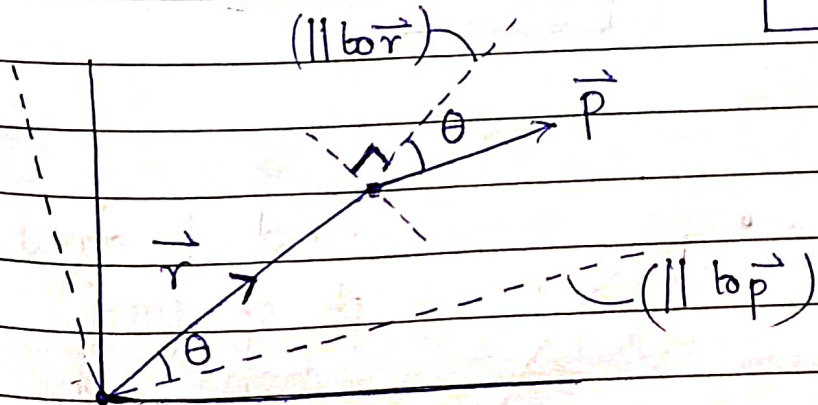 (|| to r⃗)
θ
p⃗
r⃗
(|| to p⃗)
θ